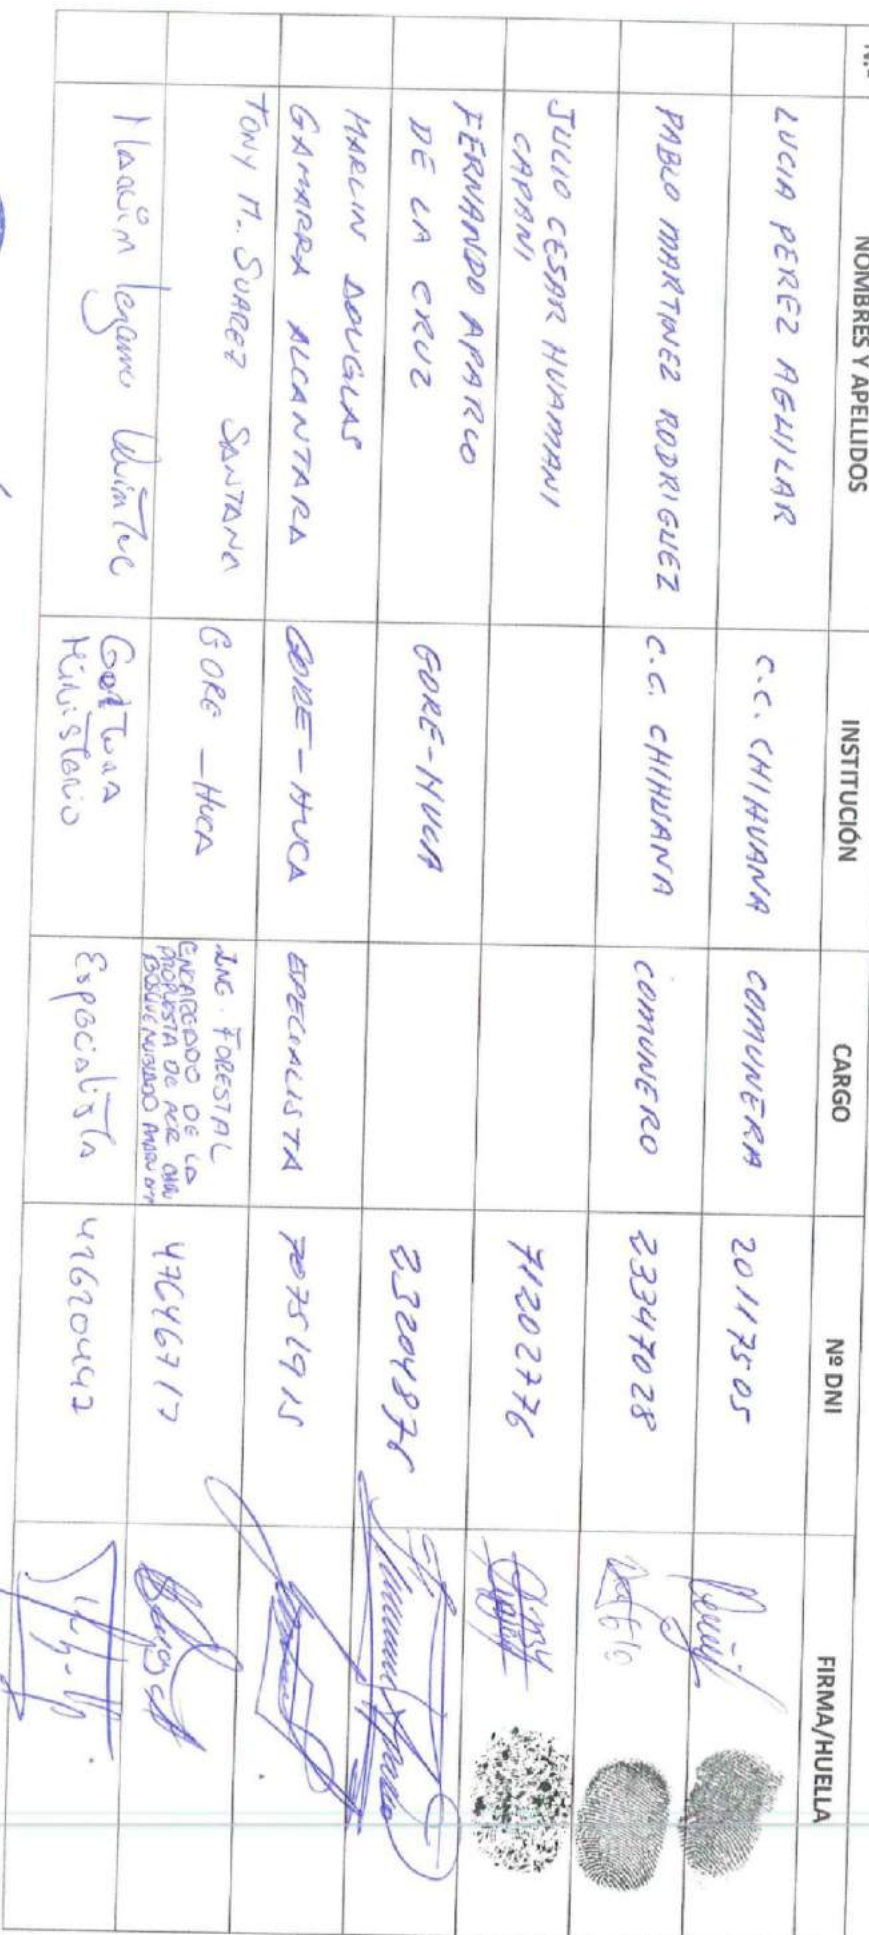 N.º NOMBRES Y APELLIDOS INSTITUCIÓN CARGO Nº DNI FIRMA/HUELLA
LUCIA PEREZ AGUILAR C.C. CHIHUANA COMUNERA 20117505
PABLO MARTINEZ RODRIGUEZ C.C. CHIHUANA COMUNERO 23347028
JULIO CESAR HUAMANI
CAPANI 71202776
FERNANDO APARCO
DE LA CRUZ GORE-HUCA
MARLIN DOUGLAS
GAMARRA ALCANTARA GORE-HUCA ESPECIALISTA
TONY M. SUAREZ SANTANA GORE-HUCA ING. FORESTAL
ENCARGADO DE LA
PROPUESTA DE ACR
BOSQUE NUBLADO 47646717
Ministerio Especialista